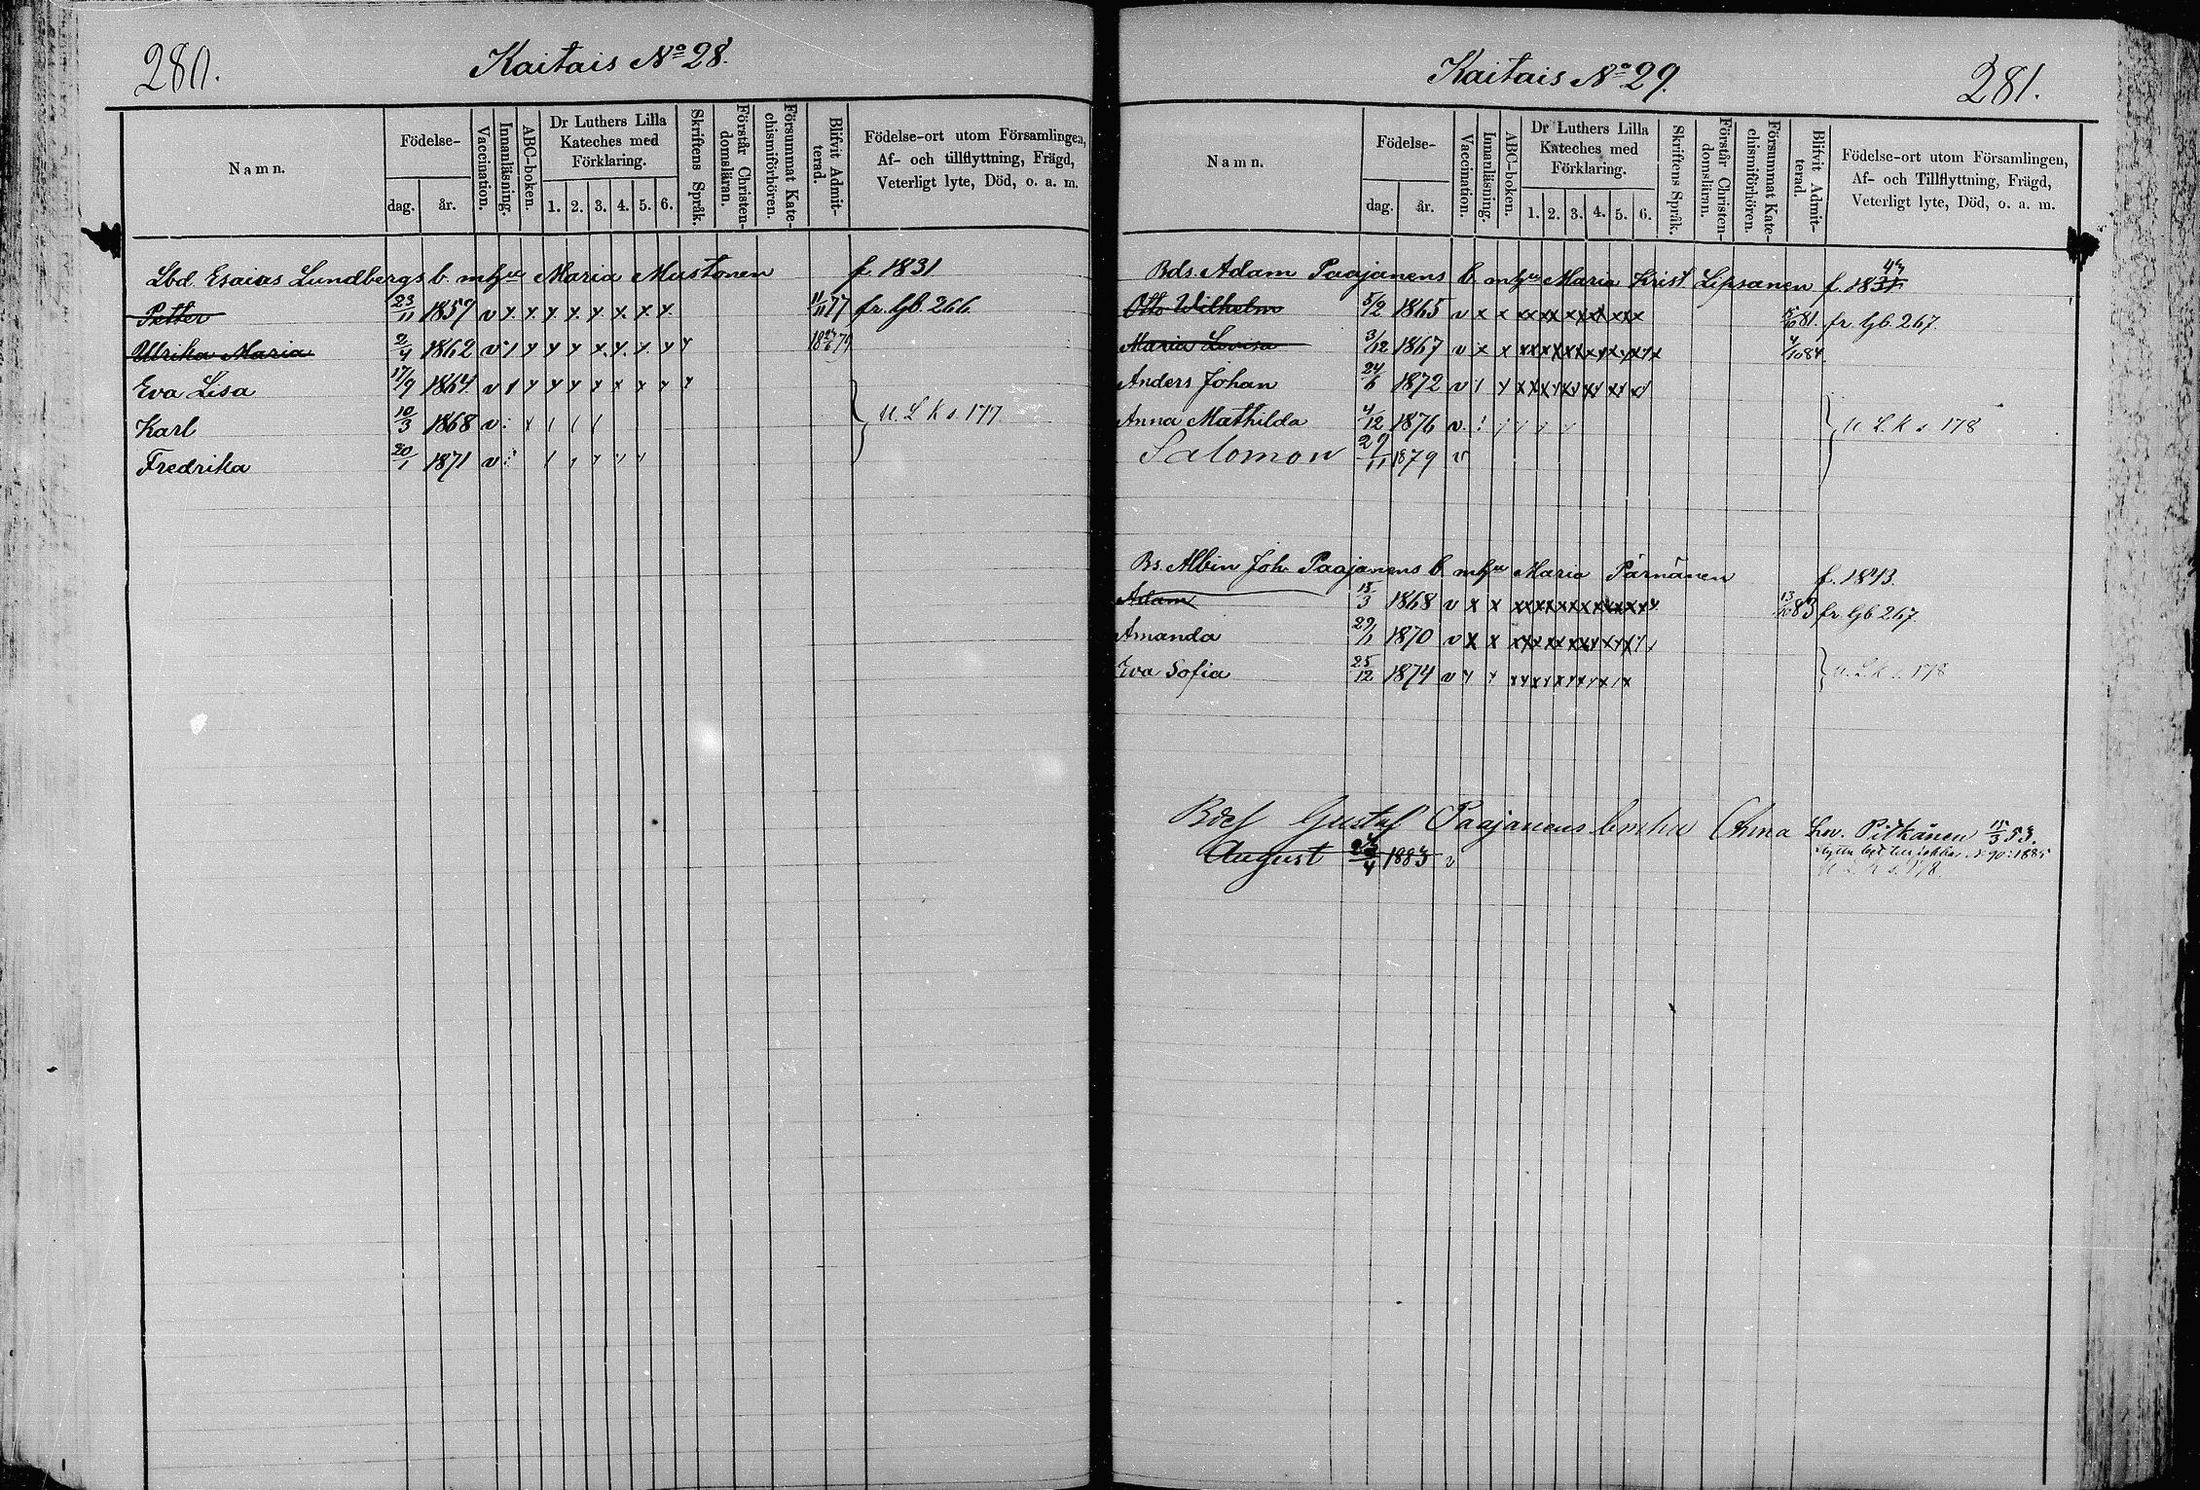 280.
Kaitais No 28.
Namn.
Födelse-
dag.
år.
Vaccination.
Innanläsning.
ABC-boken.
Dr Luthers Lilla
Kateches med
Förklaring.
1. 2. 3. 4. 5. 6.
Skriftens Språk.
Förstår Christen-
domsläran.
Försummat Kate-
chismiförhören.
Blifvit Admit-
terad.
Födelse-ort utom Församlingen,
Af- och tillflyttning, Frägd,
Veterligt lyte, Död, o. a. m.
Lbd. Esaias Lundbergs b. m hu Maria Mustonen f. 1831
Petter 23/11 1857 v x x x x x x x x 11/11 77 fr. Gb. 266
Ullrika Maria 2/4 1862 v 79
Eva Lisa 17/9 1864 v
Karl 10/3 1868 v
U. L. K s. 177
Fredrika 20/1 1871 v
Kaitais No 29.
281.
Namn.
Födelse-
dag.
år.
Vaccination.
Innanläsning.
ABC-boken.
Dr Luthers Lilla
Kateches med
Förklaring.
1. 2. 3. 4. 5. 6.
Skriftens Språk.
Förstår Christen-
domsläran.
Försummat Kate-
chismiförhören.
Blifvit Admit-
terad.
Födelse-ort utom Församlingen,
Af- och Tillflyttning, Frägd,
Veterligt lyte, Död, o. a. m.
Bds. Adam Paajanens b. m hu Maria Krist Lipsanen f. 18
Otto Wilhelm 5/2 1865 v x x 81. fr. Gb. 267.
Maria Lovisa 3/12 1867 v x x 4/10 84
Anders Johan 24/6 1872 v
Anna Mathilda 4/12 1876 v.
U. L. K s. 178
Salomon 29/11 1879 v
Bs. Albin Joh. Paajanens b. m hu Maria Pärnänen f. 1843.
Adam 15/3 1868 v x x 13/10 83 fr. Gb. 267.
Amanda 29/1 1870 v x x
Eva Sofia 25/12 1874 v
U. L. K s. 178
Gustaf Paajanens b m hu Anna Lov. Pitkänen 15/3 53.
August 1883 v
U. L. K s. 178.